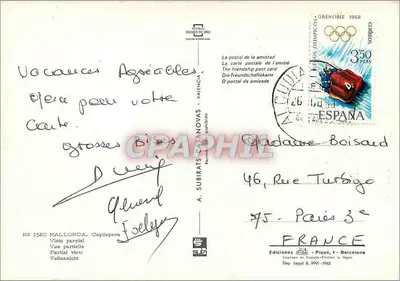 La postal de la amistad
La carte postale de l'amitié
The friendship post card
Die Freundschaftskarte
O postal da amizade
GRENOBLE 1968
CORREOS
3,50
PTAS
ESPAÑA
Vacances Agréables
Merci pour votre
Carte.
grosses Bises
Gérard
Madame Boisard
46, Rue Turbigo
75- Paris 3e
FRANCE
A. SUBIRATS CASANOVAS - VALENCIA
CPAPHIL
Nº 1520 MALLORCA, Capdepera
Vista parcial
Vue partielle
Partial view
Teilansicht
Ediciones FISA - Piqué, 4 - Barcelona
Dep. legal B. 9991-1963